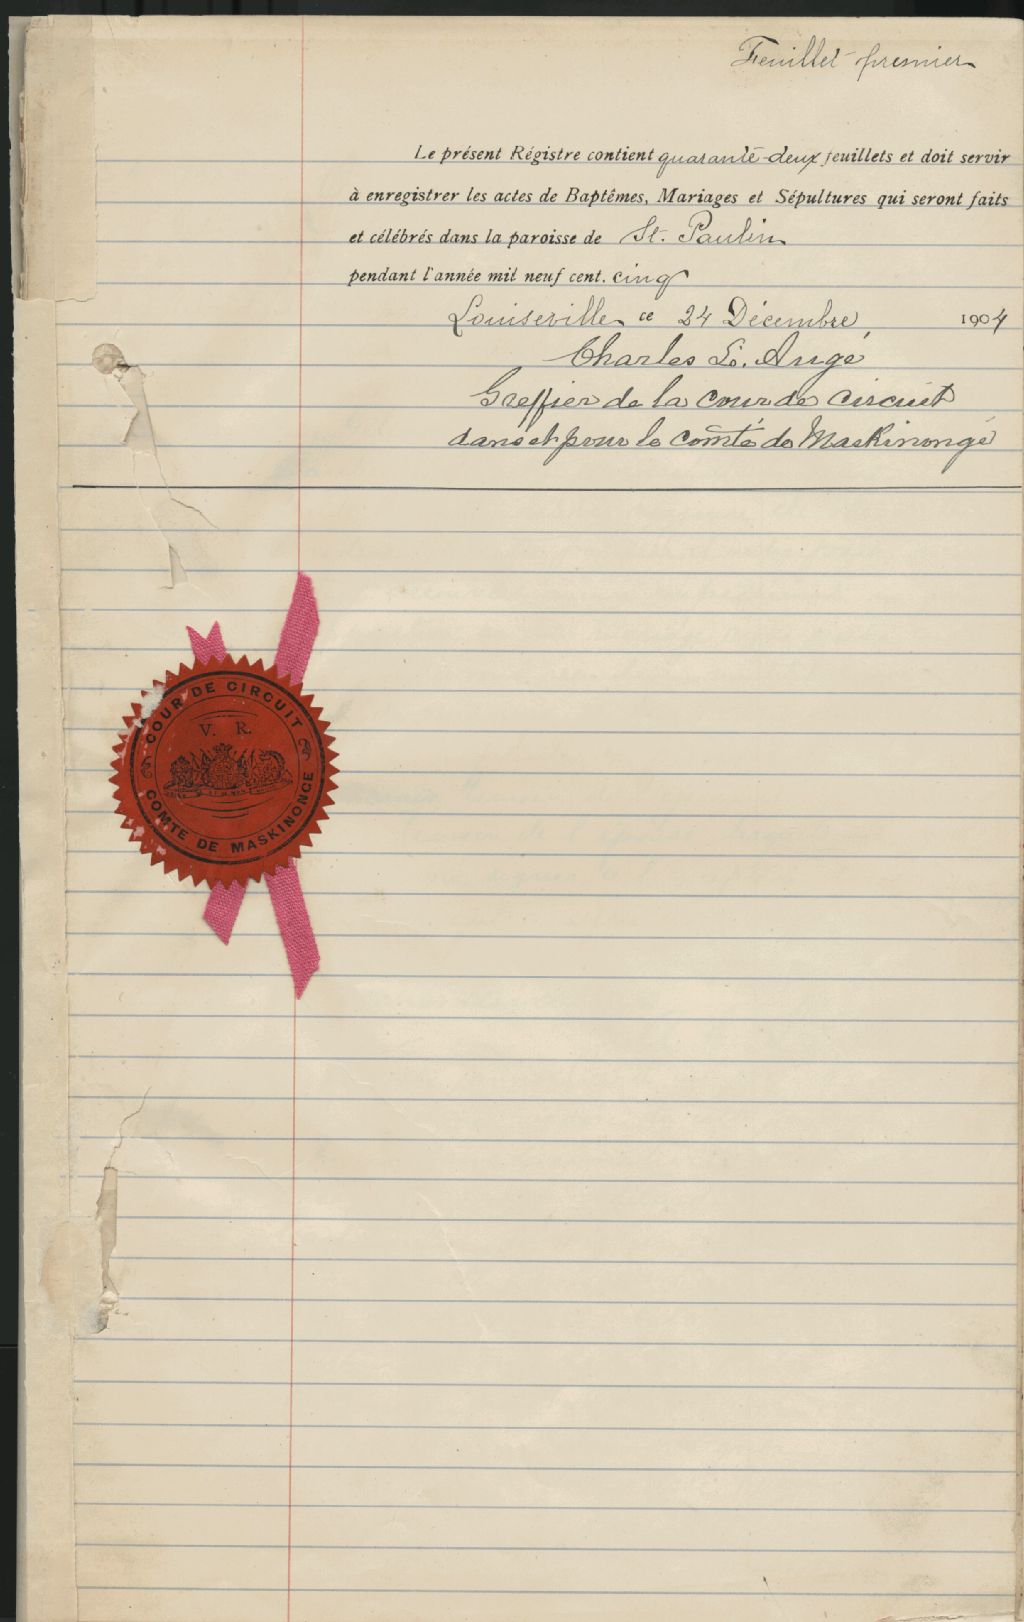 Feuillet premier
Le présent Régistre contient quarante-deux feuillets et doit servir
à enregistrer les actes de Baptêmes, Mariages et Sépultures qui seront faits
et célébrés dans la paroisse de St. Paulin
pendant l'année mil neuf cent. cinq
Louiseville ce 24 Décembre, 1904
Charles L. Augé
Greffier de la cour de circuit
dans et pour le comté de Maskinongé
COUR DE CIRCUIT
V. R.
COMTE DE MASKINONGE